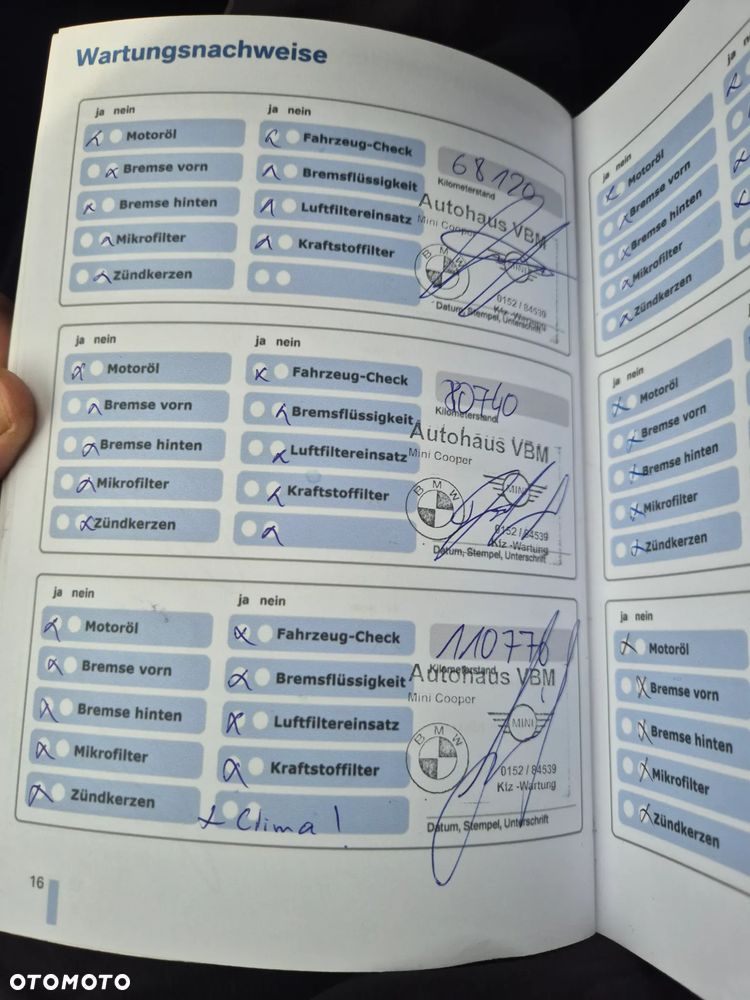 Wartungsnachweise
ja nein
ja nein
Motoröl
Bremse vorn
Bremse hinten
Mikrofilter
Zündkerzen
Fahrzeug-Check
Bremsflüssigkeit
Luftfiltereinsatz
Kraftstoffilter
68120
Kilometerstand
Autohaus VBM
Mini Cooper
BMW
MINI
0152 / 84539
Kfz -Wartung
Datum, Stempel, Unterschrift
ja nein
ja nein
Motoröl
Bremse vorn
Bremse hinten
Mikrofilter
Zündkerzen
Fahrzeug-Check
Bremsflüssigkeit
Luftfiltereinsatz
Kraftstoffilter
80740
Kilometerstand
Autohaus VBM
Mini Cooper
BMW
MINI
0152 / 84539
Kfz -Wartung
Datum, Stempel, Unterschrift
ja nein
ja nein
Motoröl
Bremse vorn
Bremse hinten
Mikrofilter
Zündkerzen
Fahrzeug-Check
Bremsflüssigkeit
Luftfiltereinsatz
Kraftstoffilter
+ Clima !
110776
Kilometerstand
Autohaus VBM
Mini Cooper
BMW
MINI
0152 / 84539
Kfz -Wartung
Datum, Stempel, Unterschrift
16
ja nein
Motoröl
Bremse vorn
Bremse hinten
Mikrofilter
Zündkerzen
ja
ja nein
Motoröl
Bremse vorn
Bremse hinten
Mikrofilter
Zündkerzen
ja nein
Motoröl
Bremse vorn
Bremse hinten
Mikrofilter
Zündkerzen
OTOMOTO